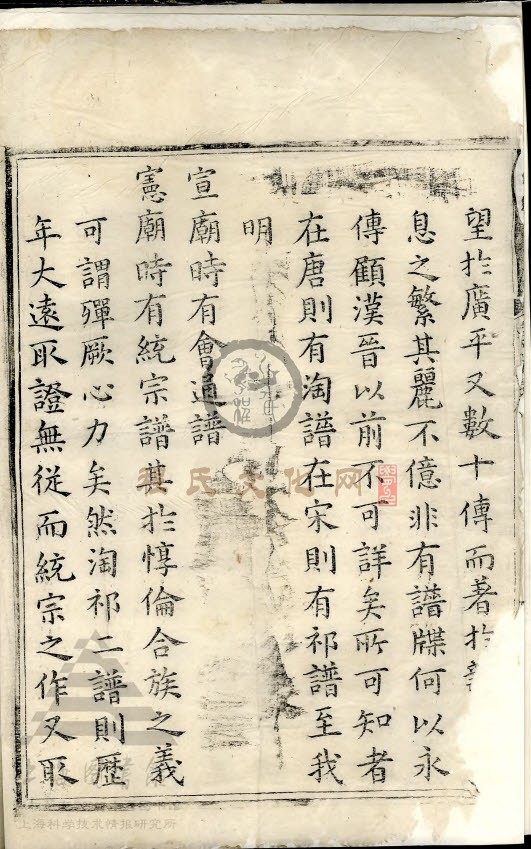 望於廣平又數十傳而著於
息之繁其麗不億非有譜牒何以永
傳顧漢晉以前不可詳矣所可知者
在唐則有淘譜在宋則有祁譜至我
明
宣廟時有會通譜
憲廟時有統宗譜其於惇倫合族之義
可謂殫厥心力矣然淘祁二譜則歷
年大遠取證無從而統宗之作又取
氏文化网
上海科学技术情报研究所